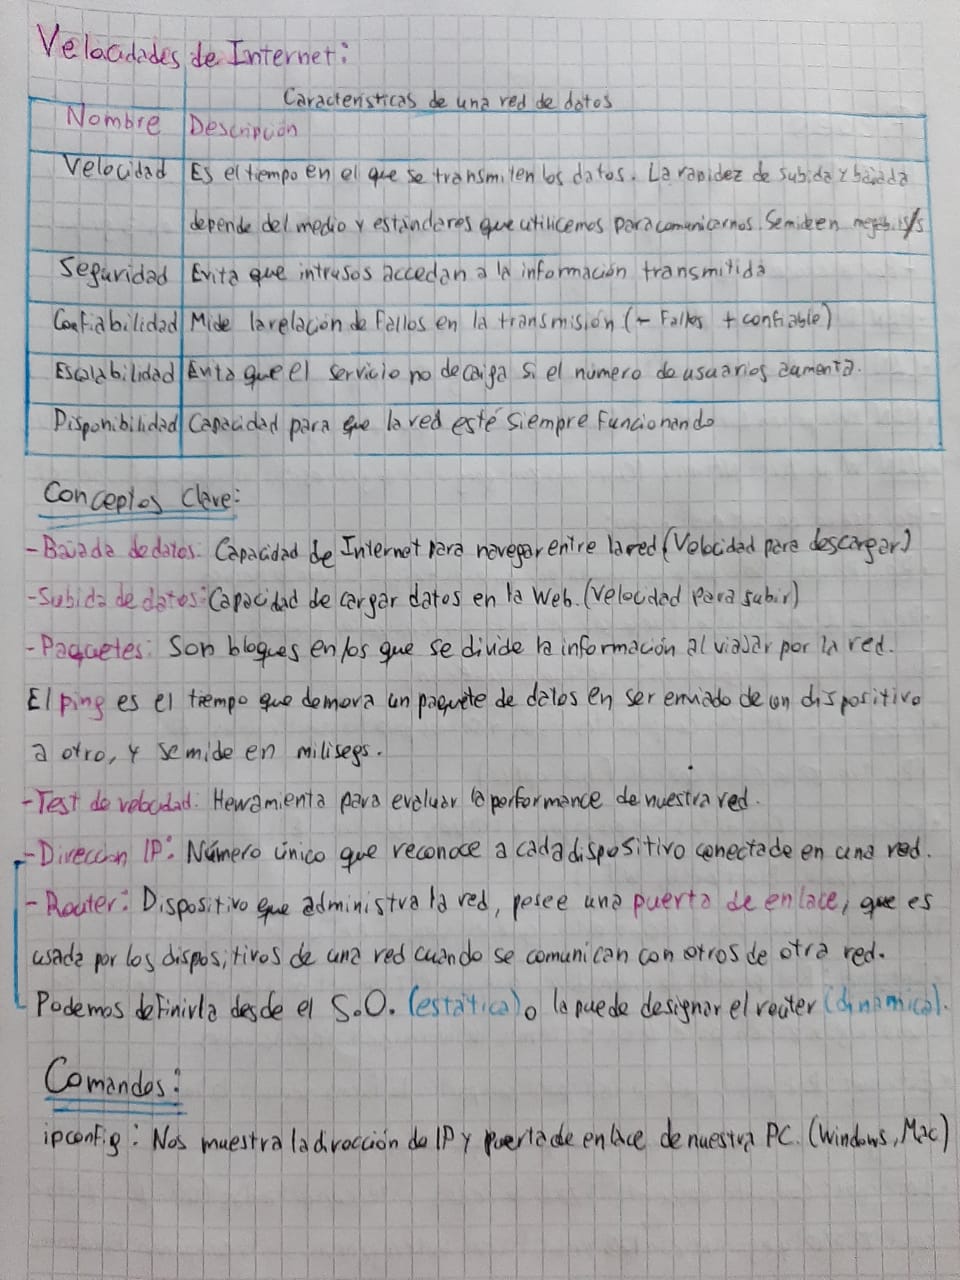 Velocidades de Internet:
Características de una red de datos
Nombre Descripción
Velocidad Es el tiempo en el que se transmiten los datos. La rapidez de subida y bajada
depende del medio y estándares que utilicemos para comunicarnos. Se mide en megabits/s
Seguridad Evita que intrusos accedan a la información transmitida
Confiabilidad Mide la relación de fallos en la transmisión (- Fallos + confiable)
Escalabilidad Evita que el servicio no decaiga si el número de usuarios aumenta.
Disponibilidad Capacidad para que la red esté siempre funcionando
Conceptos Clave:
- Bajada de datos: Capacidad de Internet para navegar entre la red (Velocidad para descargar)
- Subida de datos: Capacidad de cargar datos en la Web. (Velocidad para subir)
- Paquetes: Son bloques en los que se divide la información al viajar por la red.
El ping es el tiempo que demora un paquete de datos en ser enviado de un dispositivo
a otro, y se mide en milisegs.
- Test de velocidad: Herramienta para evaluar la performance de nuestra red.
- Direccion IP: Número único que reconoce a cada dispositivo conectado en una red.
- Router: Dispositivo que administra la red, posee una puerta de enlace, que es
usada por los dispositivos de una red cuando se comunican con otros de otra red.
Podemos definirla desde el S.O. (estática) o la puede designar el router (dinámica).
Comandos:
ipconfig: Nos muestra la dirección de IP y puerta de enlace de nuestra PC. (Windows, Mac)